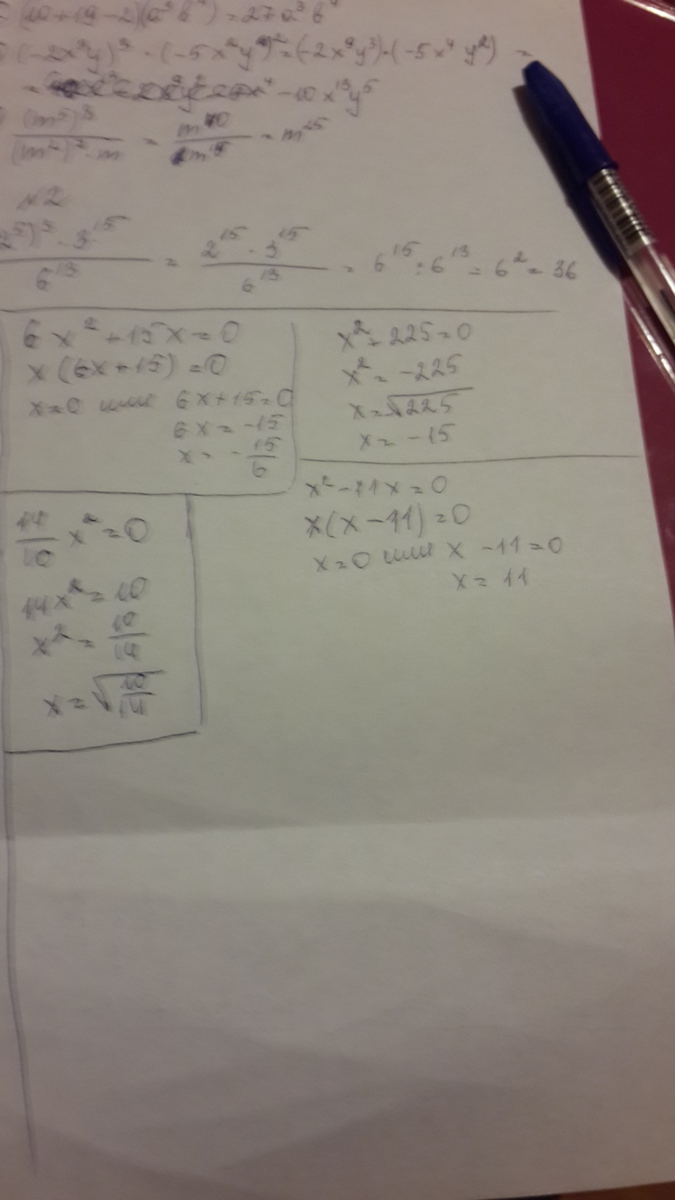 = (10+19-2)(a³b⁴) = 27a³b⁴
(-2x³y)³ · (-5x²y)² = (-2x⁹y³)·(-5x⁴y²) =
= -10x¹³y⁵
(m⁵)³ / (m²)²·m = = m²⁵
№2
2⁵)³ · 3¹⁵ / 6¹³ = 2¹⁵ · 3¹⁵ / 6¹³ = 6¹⁵ : 6¹³ = 6² = 36
6x² + 15x = 0
x(6x+15) = 0
x=0 или 6x+15=0
6x = -15
x = -15/6
x² + 225 = 0
x² = -225
x = √225
x = -15
x² - 11x = 0
x(x - 11) = 0
x=0 или x - 11 = 0
x = 11
14/10 x² = 0
14x² = 10
x² = 10/14
x = √10/14